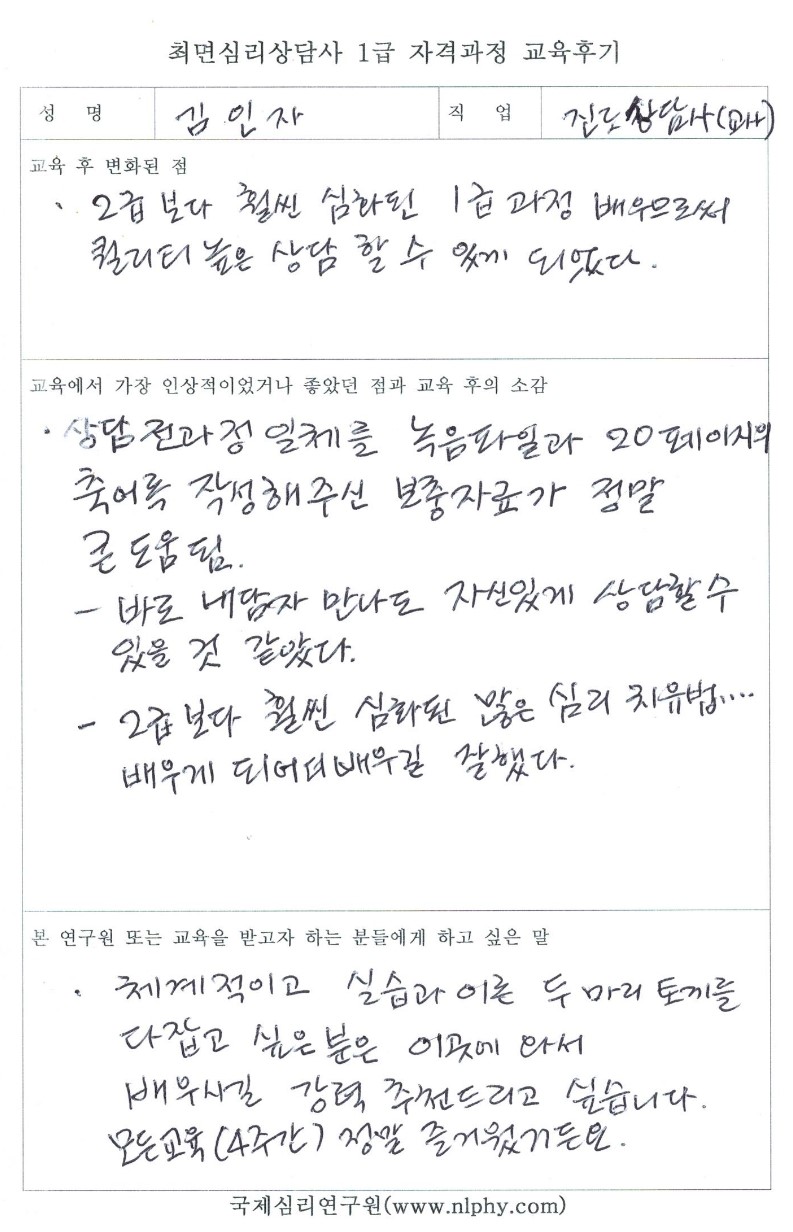 최면심리상담사 1급 자격과정 교육후기
성 명 김인자 직 업 진로상담사(교사)
교육 후 변화된 점
· 2급보다 훨씬 심화된 1급과정 배우므로써
퀄리티 높은 상담 할 수 있게 되었다.
교육에서 가장 인상적이었거나 좋았던 점과 교육 후의 소감
· 상담전과정 일체를 녹음파일과 20페이지의
축어록 작성해주신 보충자료가 정말
큰 도움 됨.
- 바로 내담자 만나도 자신있게 상담할 수
있을 것 같았다.
- 2급보다 훨씬 심화된 많은 심리 치유법....
배우게 되어서 배우길 잘했다.
본 연구원 또는 교육을 받고자 하는 분들에게 하고 싶은 말
· 체계적이고 실습과 이론 두 마리 토끼를
다잡고 싶은 분은 이곳에 와서
배우시길 강력 추천드리고 싶습니다.
모든교육(4주간) 정말 즐거웠거든요.
국제심리연구원(www.nlphy.com)